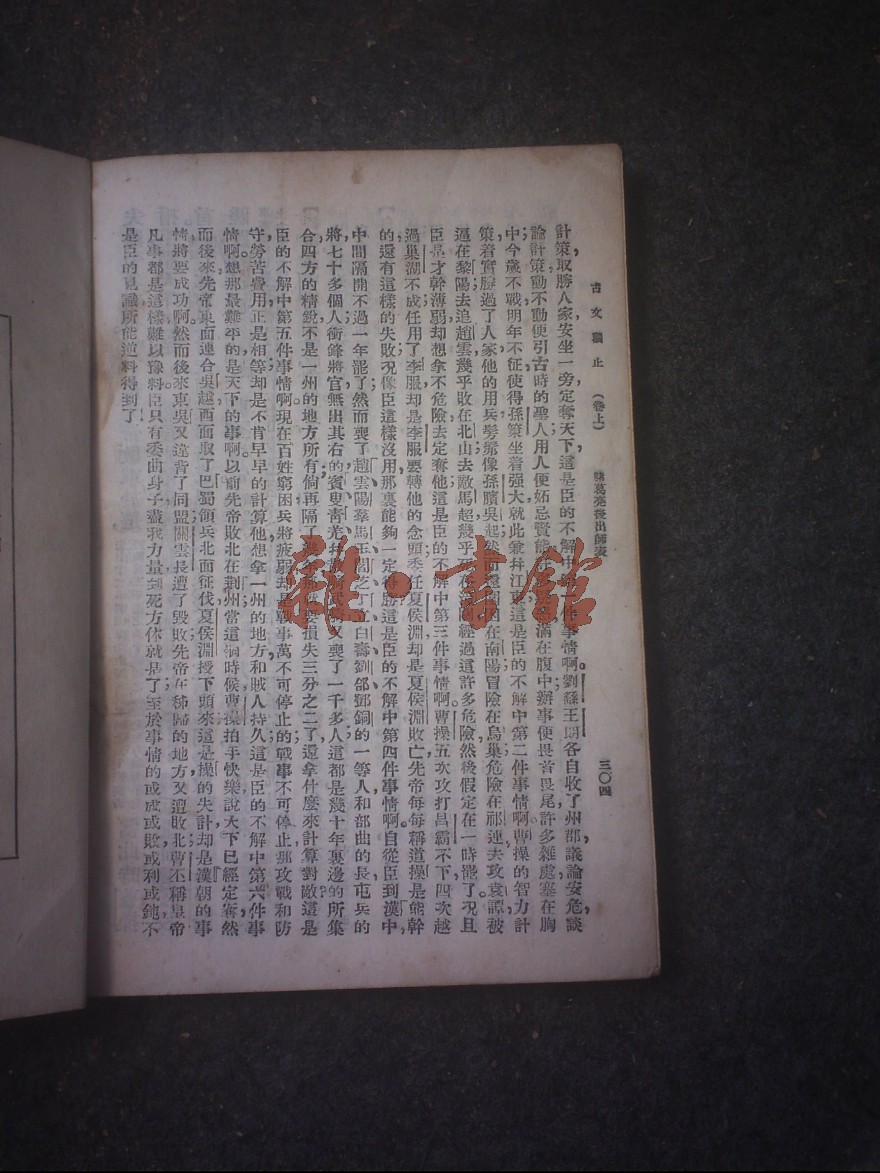 古文觀止 (卷上) 諸葛亮後出師表 三〇四
計策取勝人家安坐一旁定奪天下,這是臣的不解中 件事情啊。劉繇王朗各自收了州郡,議論安危,談
論計策,動不動便引古時的聖人,用人便妬忌賢能 滿在腹中,辦事便畏首畏尾,許多雜處塞在胸
中,今歲不戰,明年不征,使得孫策坐着强大,就此兼幷江東,這是臣的不解中第二件事情啊。曹操的智力計
策,着實勝過了人家,他的用兵,髣髴像孫臏吳起,然而還 困在南陽,冒險在烏巢,危險在祁連,去攻袁譚,被
逼在黎陽,去追趙雲,幾乎敗在北山,去敵馬超,幾乎 在 經過這許多危險,然後假定在一時罷了。况且
臣是才幹薄弱,却想拿不危險去定奪他,這是臣的不解中第三件事情啊。曹操五次攻打昌霸不下,四次越
過巢湖不成,任用了李服,却是李服要轉他的念頭,委任夏侯淵,却是夏侯淵敗亡,先帝每每稱道操是能幹
的,還有這樣的失敗,况像臣這樣沒用,那裏能夠一定得勝,這是臣的不解中第四件事情啊。自從臣到漢中,
中間隔開不過一年罷了,然而喪了趙雲陽羣馬玉閻芝丁立白壽劉郃鄧銅的一等人,和部曲的長,屯兵的
將七十多個人,衝鋒將官無出其右的,賨叟靑羌 又喪了一千多人,這都是幾十年裏邊的所集
合四方的精銳,不是一州的地方所有,倘再隔了 要損失三分之二了,還拿什麼來計算對敵,這是
臣的不解中第五件事情啊。現在百姓窮困,兵將疲弱,却是戰事萬不可停止的,戰事不可停止,那攻戰和防
守,勞苦費用正是相等,却是不肯早早的計算他,想拿一州的地方,和賊人持久,這是臣的不解中第六件事
情啊。想那最難平的,是天下的事啊,以前先帝敗北在荆州,當這個時候,曹操拍手快樂,說天下已經定奪,然
而後來先帝東面連合吳越,西面取了巴蜀,領兵北面征伐,夏侯淵授下頭來,這是操的失計,却是漢朝的事
情將要成功啊。然而後來東吳又違背了同盟,關雲長遭了毀敗,先帝在秭歸的地方,又遭敗北,曹丕稱皇帝,
凡事都是這樣,難以豫料,臣只有委曲身子,盡我力量,到死方休就是了,至於事情的或成或敗,或利或鈍,不
是臣的見識所能逆料得到了。
雜·書館